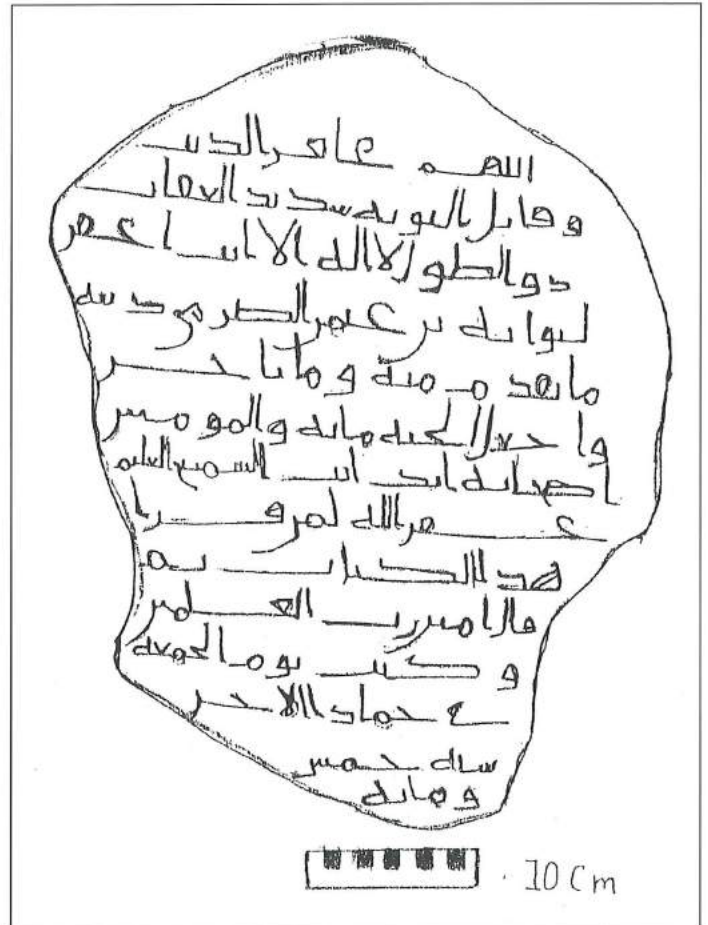 اللهم غافر الذنب
وقابل التوبة شديد العقاب
ذو الطول لا اله الا انت اغفر
لثوابة بن عمر ذنبه
ما تقدم منه وما تاخر
واجعل الجنة مابه والمومنين
اصحابه انك انت السميع العليم
غفر الله لمن قرا
هذا الكتاب ثم
قال امين رب العلمين
وكتب يوم الجمعة
في جماد الاخر
سنة خمس
ومائة
10 Cm